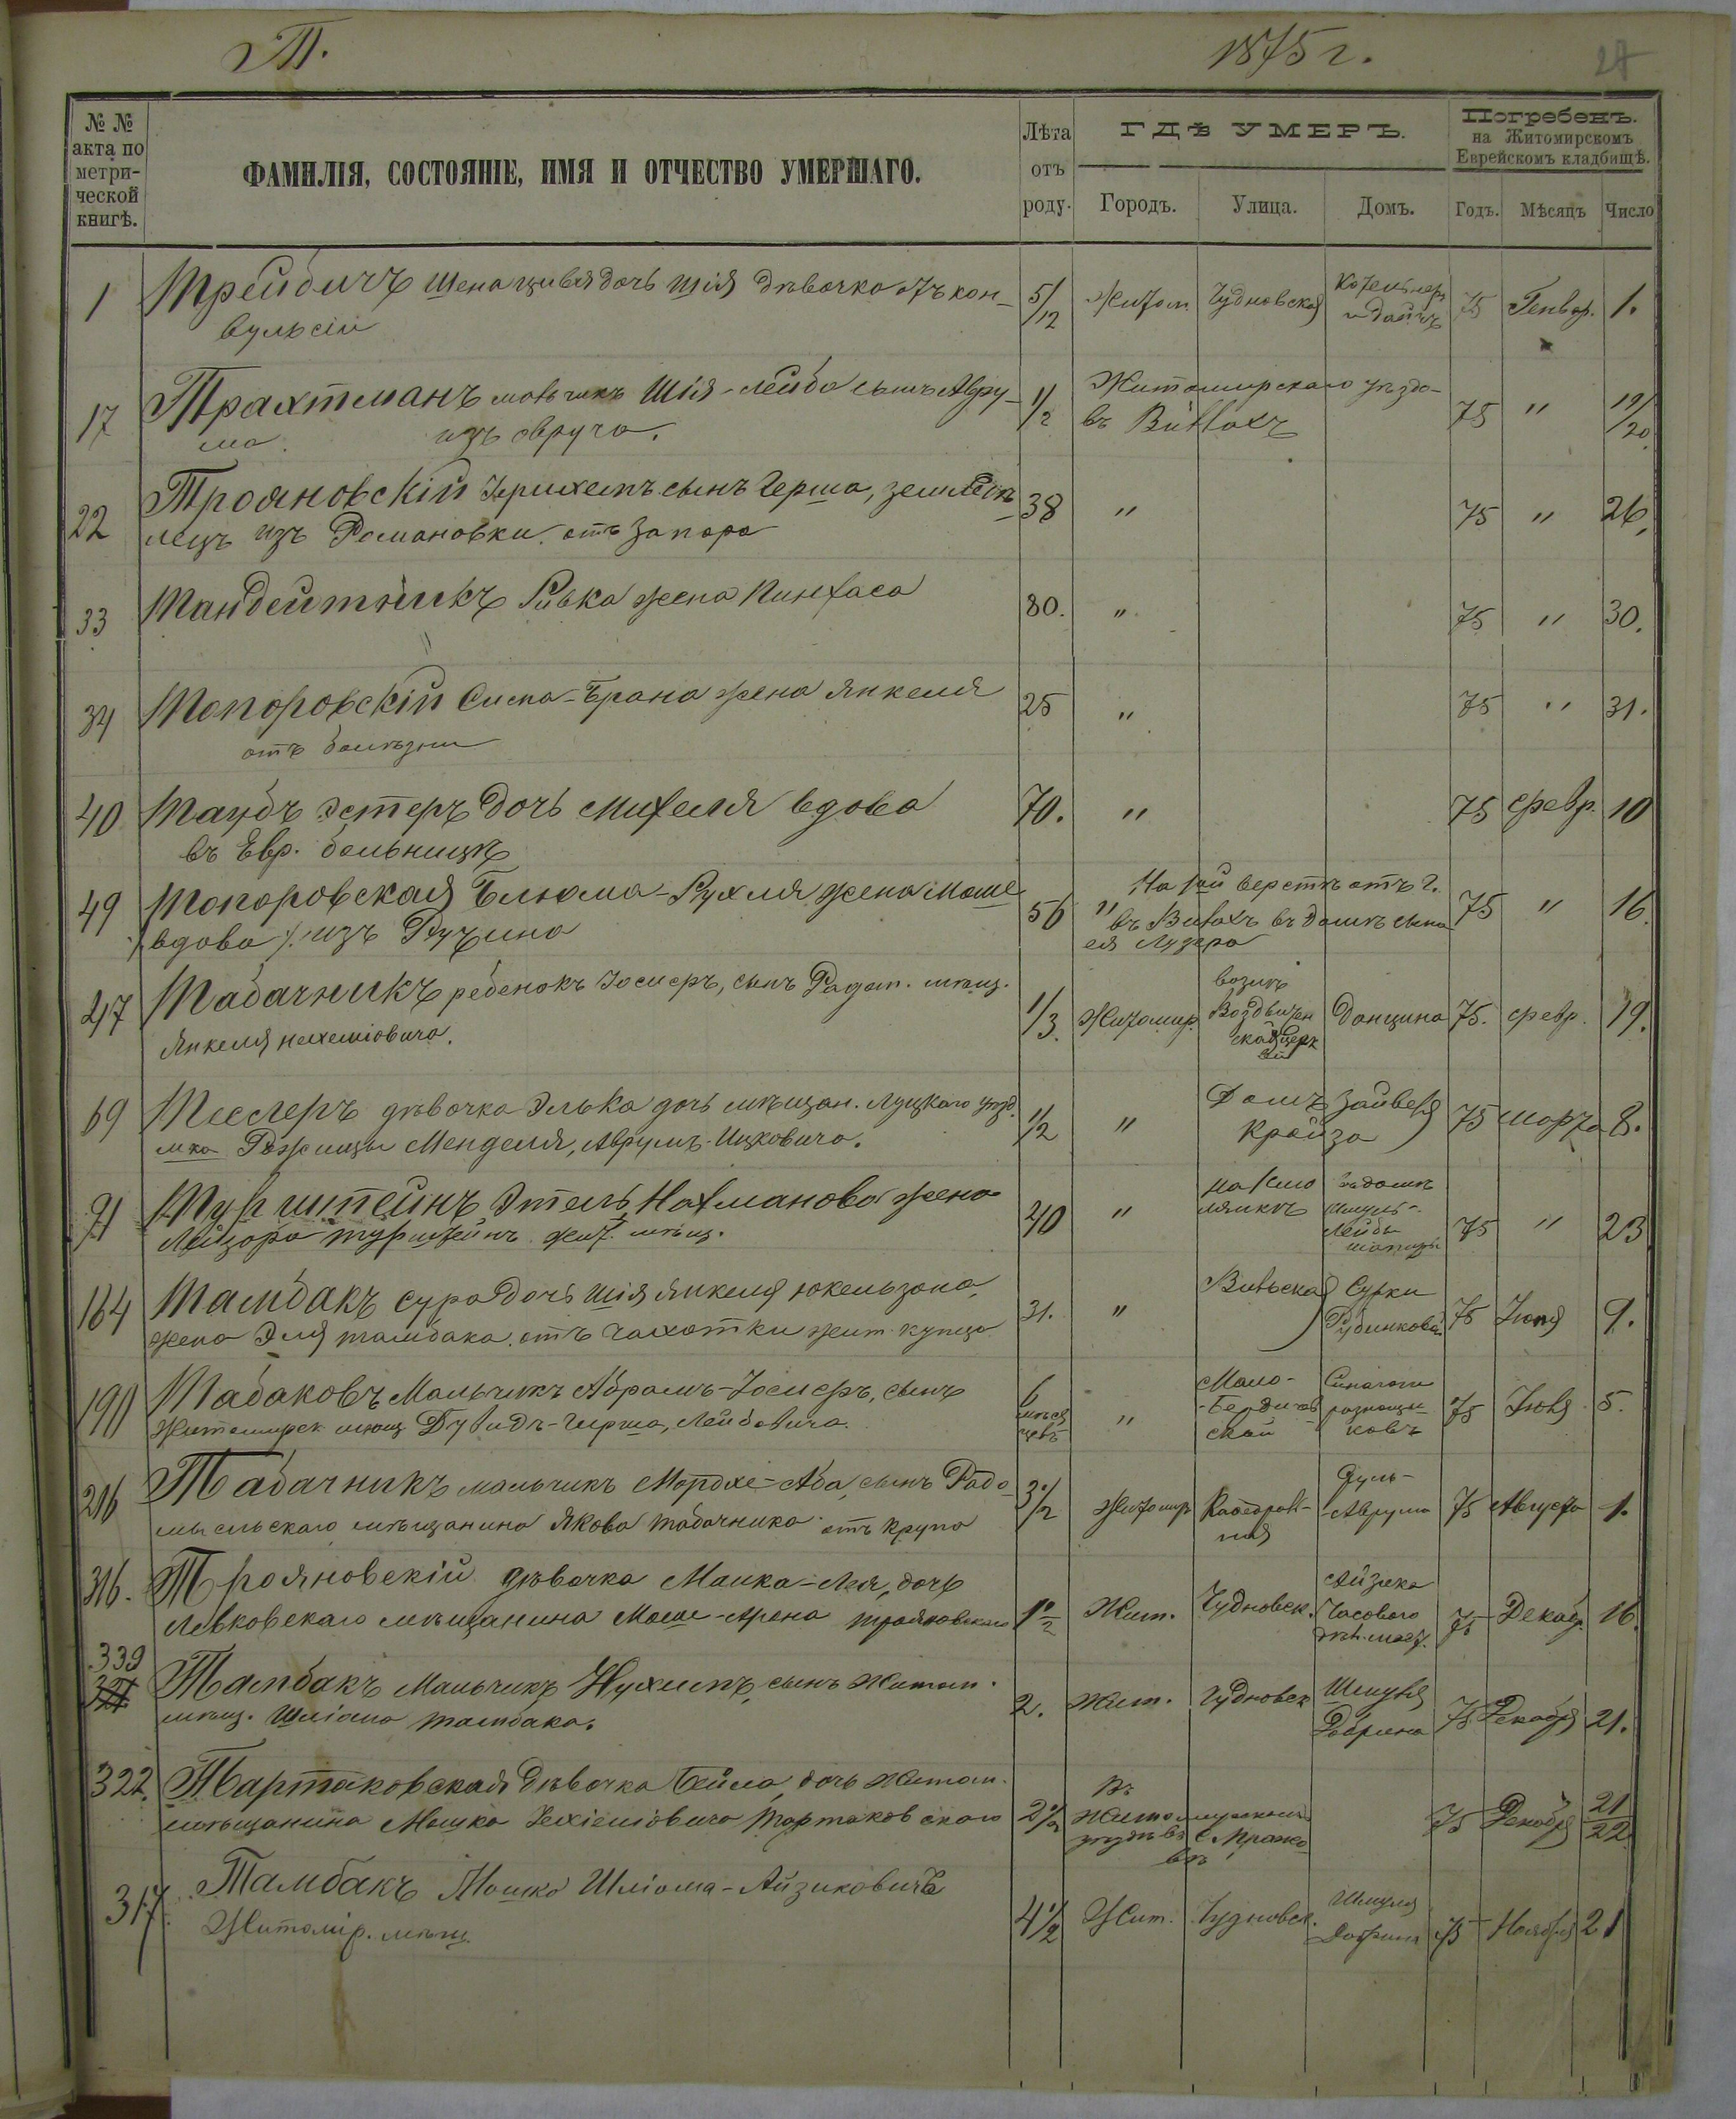 Т.
1875 г.
27
№ № акта по метри-ческой книгѣ.
ФАМИЛІЯ, СОСТОЯНІЕ, ИМЯ И ОТЧЕСТВО УМЕРШАГО.
Лѣта отъ роду.
ГДѢ УМЕРЪ.
Городъ. Улица. Домъ.
Погребенъ.
на Житомирскомъ
Еврейскомъ кладбищѣ.
Годъ. Мѣсяцъ Число
1 Трейбичъ Шена цивья дочь Шія дѣвочка отъ кон- 5/12 Житом. Чудновская 75 Генвар. 1.
вульсіи
17 Трахтманъ мальчикъ Шія-Лейба сынъ Авру- 1/2 Житомирскаго уѣзда 75 " 19/20
ма. изъ овруча. въ
22 Трояновскій сынъ Герша, землѣдѣ- 38 " 75 " 26.
лецъ изъ Романовки. отъ запора
33 Ривка жена Пинхаса 80. " 75 " 30.
34 Топоровскій Брана жена Янкеля 25 " 75 " 31.
отъ болѣзни
40 Таубъ Эстеръ дочь Михеля вдова 70. " 75 февр. 10
въ Евр. больницѣ
49 Топоровская Блюма-Рухля жена Моше 56 " На 1ой верстѣ отъ г. 75 " 16.
вдова изъ въ домѣ сына
ея Лузера
47 Табачникъ ребенокъ Іосифъ, сынъ Радом. мѣщ. 1/3. Житомир. возлѣ Воздвижен ской церк ви Данцина 75. февр. 19.
Янкеля Нахеміовича.
69 Теслеръ дѣвочка Элька дочь мѣщан. Луцкаго уѣзд. 1/2 " Домъ Зайвеля 75 марта 8.
мка Рожищы Менделя, Аврумъ-Ицковича. Крайза
91 Турштейнъ Этель Нахманова жена 40 " въ домѣ Шмуль-Лейбы 75 " 23
Лейзора Турштейнъ жит. мѣщ.
164 Тамбакъ Сура дочь Шія Янкеля Юкельзона, 31. " Вильская Сурки Рубинковой 75 Іюня 9.
жена Эля Тамбака. отъ чахотки жит. купца
190 Табаковъ Мальчикъ Абрамъ-Іосифъ, сынъ 6 мѣся цевъ " Мало-Бердичев ской Синагоги 75 Іюля 5.
Житомирск. мѣщ Дувидъ-Герша, Лейбовича.
216 Табачникъ мальчикъ Мордхе-Аба, сынъ Радо- 3 1/2 Житомир Каѳедраль-ная Аврума 75 Августа 1.
мысльскаго мѣщанина Якова Табачника. отъ крупа
316. Трояновскій дѣвочка Малка-Лея, дочь 1 1/2 Жит. Чудновск. Айзика Часового 75 Декабр. 16.
Левковскаго мѣщанина Моше-Арона Трояновскаго
339
Тамбакъ Мальчикъ Нухимъ, сынъ Житом. 2. Жит. Чудновск Шмуля 75 Декабря 21.
мѣщ. Шліома Тамбака.
322. Тартаковская Дѣвочка Бейла, дочь Житом. 2 1/2 Въ Житомирскомъ уѣздѣ въ 75 Декабря 21/22
мѣщанина Мошка Тартаковскаго
317. Тамбакъ Мошко Шліома-Айзиковичъ 4 1/2 Жит. Чудновск. Шмуля 75 Ноября 21
Житомір. мѣщ.